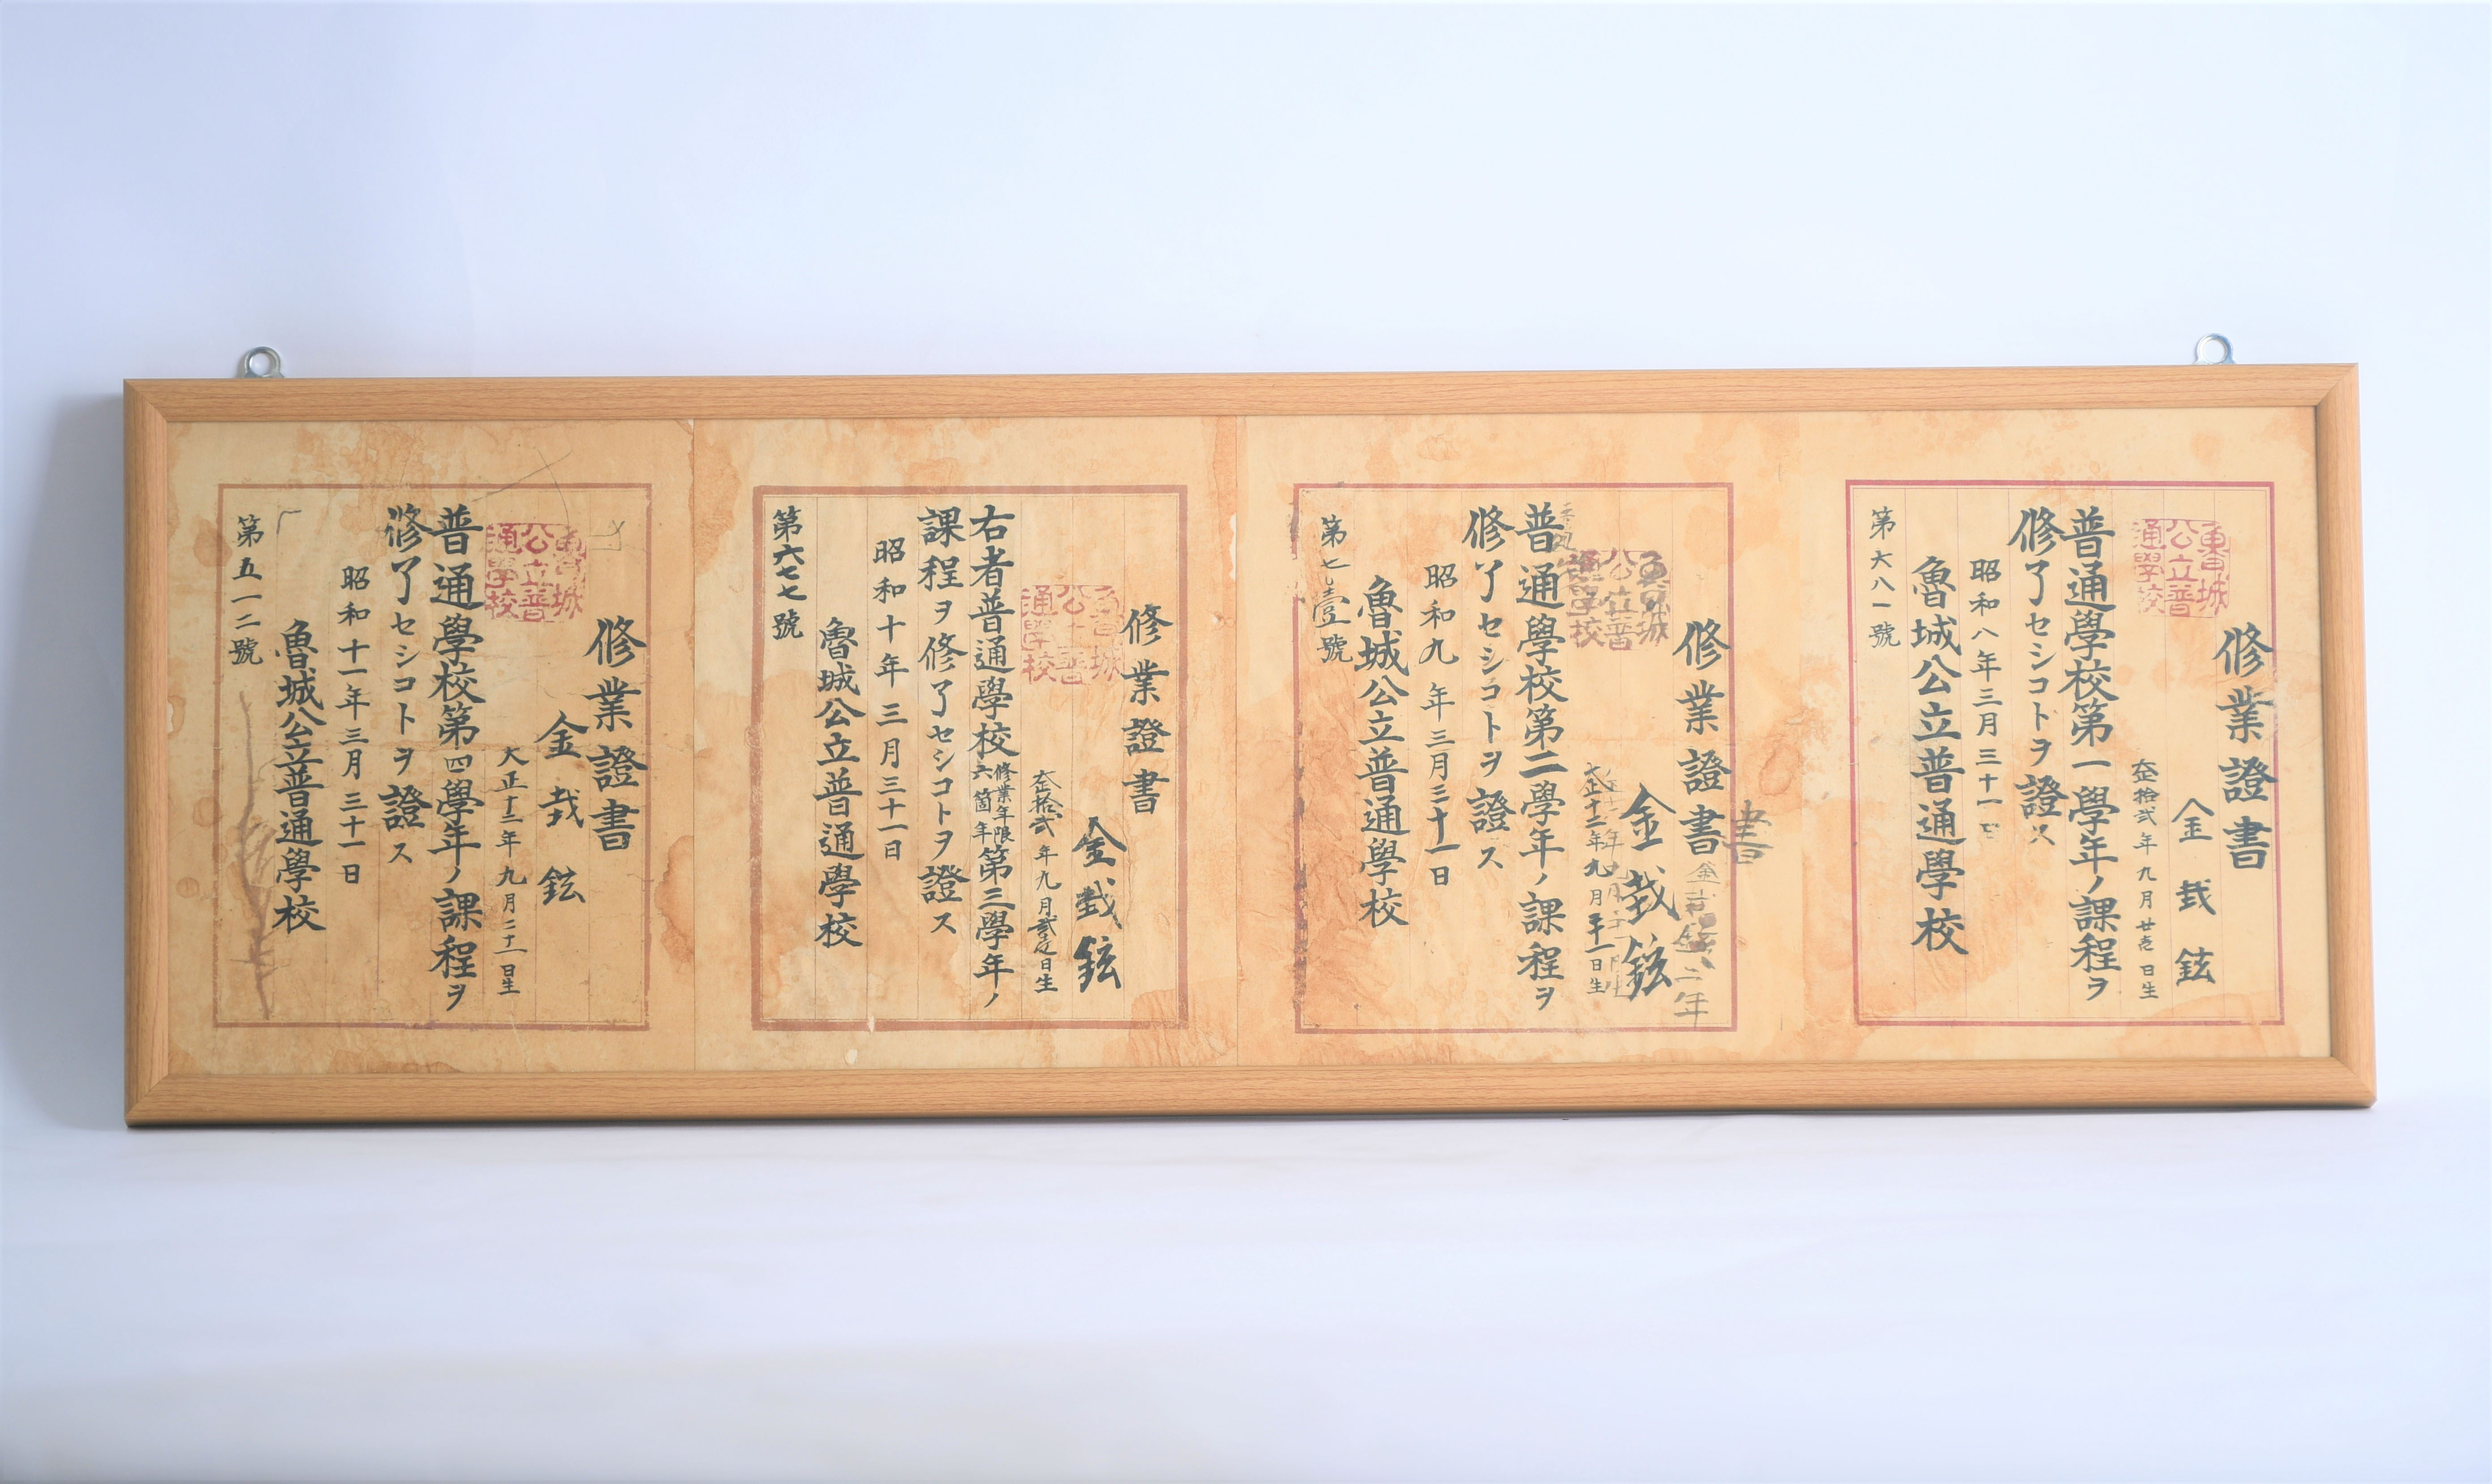 修業證書
金㦲鉉
大正拾貳年九月廿壱日生
普通學校第一學年ノ課程ヲ
修了セシコトヲ證ス
昭和八年三月三十一日
魯城公立普通學校
第六八一號
魯城
公立普
通學校
修業證書
書
二年
金㦲鉉
九月
日生
普通學校第二學年ノ課程ヲ
修了セシコトヲ證ス
昭和九年三月三十一日
魯城公立普通學校
第七壹號
魯城
公立普
通學校
修業證書
金㦲鉉
年九月
日生
右者普通學校修業年限六箇年第三學年ノ
課程ヲ修了セシコトヲ證ス
昭和十年三月三十一日
魯城公立普通學校
第六七七號
魯城
公立普
通學校
修業證書
金㦲鉉
大正十二年九月二十一日生
普通學校第四學年ノ課程ヲ
修了セシコトヲ證ス
昭和十一年三月三十一日
魯城公立普通學校
第五一二號
魯城
公立普
通學校